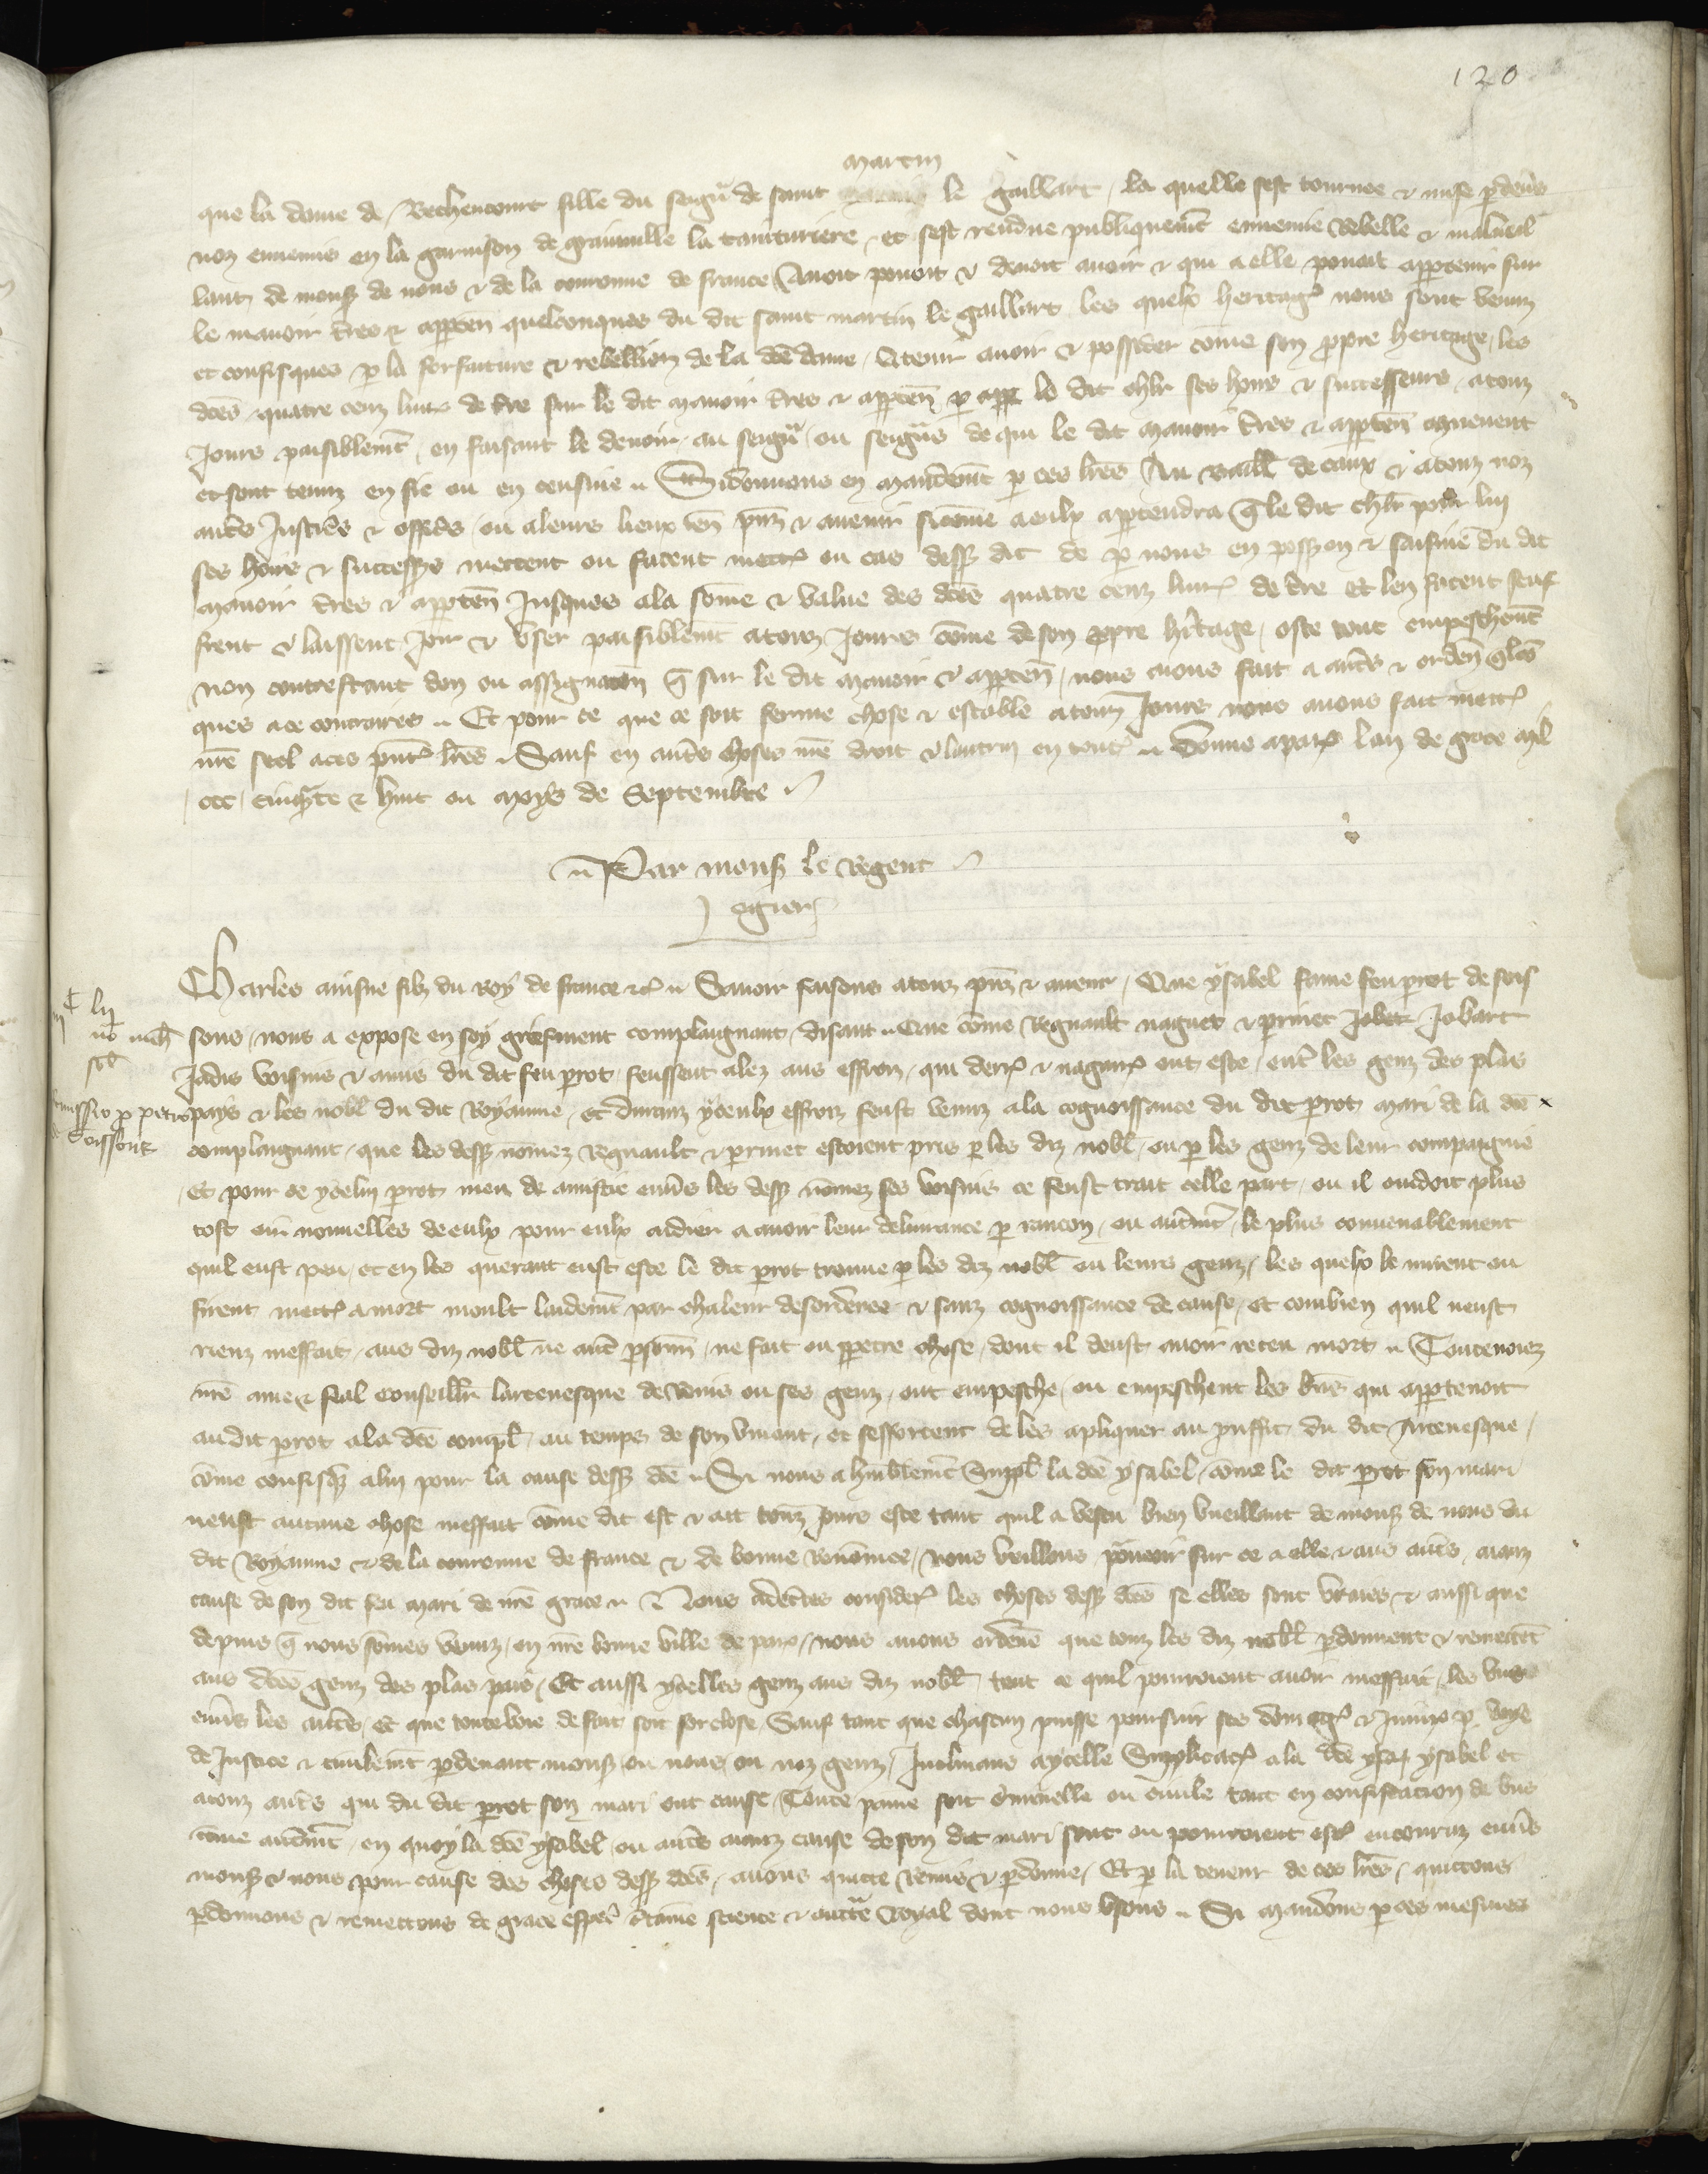 120
martin
que la dame de Bethencourt fille du seigñ de saint le gaillart, la quelle sest tournee & mise p deũs
noz ennemis en la garnison de grainuille la tainturiere, et sest rendue publiquemẽt ennemie Rebelle & malueil
lant de monsʒ de nous & de la couronne de france Auoit pouoit & deuoit auoir & qui a elle pouoit appartenir sur
le manoir t̃res & apptẽn quelconques du dit saint martin le gaillart les quelx heritagẽ nous sont venuz
et confisques p la forfaiture & rebellion de la dcẽ dame, A tenir auoir & posseder cõme son ppre heritage, les
dcẽs quatre cenz liurẽ de t̃re sur le dit manoir t̃res & apptẽn p le dit chlr̃ ses hoirs & successeurs, a touz
Jours paisiblemẽt, en faisant le deuoir au seigñ ou seigñs de qui le dit manoir t̃res & apptẽn muevent
et sont tenuz en fie ou en censiue .. Si donnons en mandemẽt p ces lr̃es Au baillĩ de caux & a touz noz
autẽs Justiciẽs & officiẽs, ou a leurs lieux ten̄ pñz & auenir si cõme a eulx apptendra q̃ le dit chlr̃ pour lui
ses hoirs & successeẽs mettent ou facent mettẽ ou cas dessʒ dit de p nous en possʒon & saisinẽ du dit
manoir t̃res & apptẽn Jusques a la sõme & value des dcẽs quatre cenz liurẽ de t̃re et len facent seuf
frent & laissent Joir & vser paisiblemẽt a touz Jours cõme de son ppre hr̃itage, oste tout empeschemẽt
non contrestant don ou assignacõn q̃ sur le dit manoir & apptẽn, nous auons fait a autẽs & ordeñ q̃lcõ
ques a ce contraires .. Et pour ce que ce soit ferme chose & estable a touz Jours nous auons fait mettẽ
nr̃e seel a ces pñtẽ lr̃es .. Sauf en autẽs choses nr̃e droit & lautrui en toutẽ .. Donne a parẽ lan de grace mil
ccc, cinq̃te & huit ou moys de Septembre
.. Par monsʒ le Regent
ogier
Charles ainsne filz du Roy de france &cẽ .. Sauoir faisons a touz pñz & auenir, Que ysabel fame feu perot de sois
sons, nous a expose en soy griefment complaignant, disant .. Que cõme Regnault nagues & perrinet Jobart
Jadis voisins & amis du dit feu perot, feussent alez aus effroiz, qui derrẽ & nagairẽ ont este, ent̃ les genz des plas
pays & les noblẽ du dit Royaume, et durant yceulx effroiz feust venuz a la cognoissance du dit perot mari de la dcẽ
complaignant, que les dessʒ nõmez Regnault & perrinet estoient pris p les diz noblẽ, ou p les genz de leur compaignie
Et pour ce ycelui perot meu de amistie enuẽs les dessʒ nõmez ses voisins ce feust trait celle part, ou il cuidoit plus
tost oir nouuelles de eulx pour eulx aidier a auoir leur deliurance p rancon, ou autẽmẽt, le plus conuenablement
quil eust peu, et en les querant eust este le dit perot trouue p les diz noblẽ ou leurs genz, les quelx le mirent ou
firent mettẽ a mort moult laidemẽt par chaleur desordenee & sanz cognoissance de cause, et combien quil neust
rienz meffait, aus diz noblẽ ne autẽ psonnẽ, ne fait ou ppetre chose, dont il deust auoir receu mort .. Toutevoiez
nr̃e ame & feal conseillr̃ larceuesque de Reins ou ses genz, ont empesche, ou empeschent les biẽs qui apptenoit
au dit perot a la dcẽ complẽ au temps de son viuant, et sefforcent de les apliquer au prouffit du dit Arceuesque,
cõme confisqẽ a lui pour la cause dessʒ dcẽ .. Si nous a hũblemẽt Supplĩ la dcẽ ysabel, cõme le dit perot son mari
neust aucune chose meffait cõme dit est & ait touz Jours este tant quil a vescu bien vueillant de monsʒ de nous du
dit Royaume & de la couronne de france & de bonne Renõmee, Nous vueillons pourueoir sur ce a elle & aus autẽs, aianz
cause de son dit feu mari de nr̃e grace .. Nous adectes considerẽ les choses dessʒ dcẽs se elles sont vraies & aussi que
depuis q̃ nous sõmes venuz, en nr̃e bonne ville de parẽ, nous auons ordenẽ que touz les diz noblẽ pardonnent & remettẽt
aus dcẽs genz des plas pais, Et aussi ycelles genz aus diz noblẽ, tout ce quil pourroient auoir meffait, les vns
enuẽs les autẽs, et que toute voie de fait soit forclose, Sauf tant que chascun puisse poursuir ses dõmagẽ & Jniurẽ p voye
de Justice & ciuilemẽt p deuant monsʒ, ou nous, ou noz genz, Jnclinans a ycelle Supplicacõ, a la dcẽ ysabel et
a touz autẽs qui du dit perot son mari ont cause, Toute paine soit criminelle ou ciuile tant en confiscacion de biẽs
cõme autẽmẽt, en quoy la dcẽ ysabel, ou autẽs aianz cause de son dit mari sont ou pourroient estrẽ encouruz enuẽs
monsʒ & nous pour cause des choses dessʒ dcẽs, auons quitte Remis & pardonne, Et p la teneur de ces lr̃es, quittons
pardonnons & remettons de grace espẽcĩ c̃taine science & auctẽ Royal dont nous vsons .. Si mandons p ces mesmes
lij
Remissio p petro
de soissons